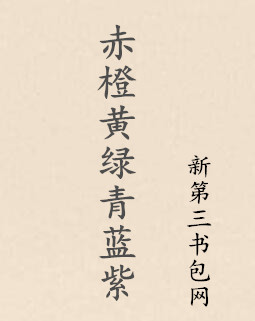 赤橙黄绿青蓝紫
新第三书包网